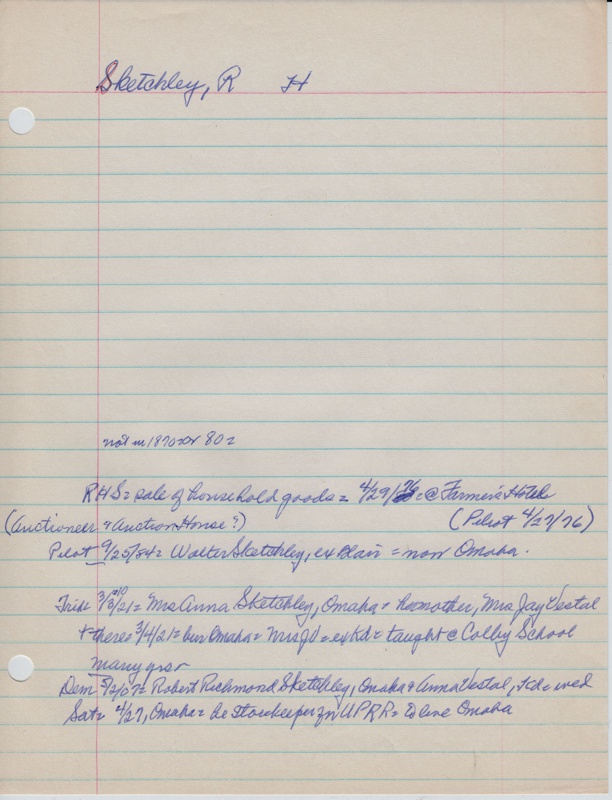 Sketchley, R H
not in 1870 or 80=
RHS= sale of household goods= 4/29/76= @ Farmer's Hotel
(Auctioneer & Auction House?) (Pilot 4/27/76)
Pilot 9/25/84= Walter Sketchley, ex Blair = now Omaha.
Trib= 3/3/21= Mrs Anna Sketchley, Omaha & her mother, Mrs Jay Vestal
& there= 3/4/21= bur Omaha= Mrs JV= ex Kd= taught @ Colby School
many yrs
Dem 5/2/07= Robert Richmond Sketchley, Omaha & Anna Vestal, Kd= wed
Sat= 4/27, Omaha= he storekeeper for UPRR= to live Omaha